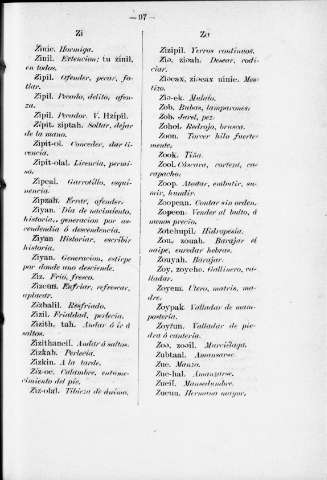 — 97 —
Zi
Zinic. Hormiga.
Zinil. Extencion: tu zinil,
en todas.
Zipil. Ofender, pecar, fa-
llar.
Zipil. Pecado, delito, ofen-
za.
Zipil. Pecador. V. Hzipil.
Zipit. ziptah. Soltar, dejar
de la mano.
Zipit-ol. Conceder, dar li-
cencia.
Zipit-olal. Licencia, permi-
so.
Zipcal. Garrotillo, esqui-
nencia.
Zipzah. Errar, ofender.
Ziyan. Dia de nacimiento,
historia, generacion por as-
cendendia ó descendencia.
Ziyan Historiar, escribir
historia.
Ziyan. Generacion, estirpe
por donde uno desciende.
Ziz. Frio, fresco.
Zizcun. Enfriar, refrescar,
aplacar.
Zizbalil. Resfriado.
Zizil. Frialdad, perlecia.
Zizith, tah. Andar ó ir á
saltos.
Zizithancil. Andar á saltos.
Zizkah. Perlecia.
Zizkin. A la tarde.
Ziz-oc. Calambre, entume-
cimiento del pié.
Ziz-olal. Tibieza de ánimo.
Zo
Zizipil. Yerros continuos.
Ziɔ, ziɔah. Desear, codi-
ciar.
Ziɔcax, ziɔcax uinic. Mes-
tizo.
Ziɔ-ek. Mulato.
Zob. Bubas, lamparones:
Zob. Jarel, pez.
Zohol. Redrojo, brusca.
Zoon. Torcer hilo fuerte-
mente,
Zook. Tiña.
Zool. Cáscara, corteza, ca-
rapacho:
Zoop. Atestar, embutir, su-
mir, hundir.
Zoopcan. Contar sin orden.
Zopcon. Vender al bulto, á
menos precio.
Zotchupil. Hidropesia.
Zou, zouah. Barajar el
naipe, enredar hebras.
Zouyah. Barajar.
Zoy, zoycho. Gallinero, ca-
lladar.
Zoyem. Utero, matriz, ma-
dre.
Zoypak Valladar de mam-
posteria.
Zoytun. Valladar de pie-
dra ó canteria.
Zoɔ, zoɔil. Murciélago.
Zubtaal. Amansarse.
Zuc. Manzo.
Zuc-hal. Amanzarse.
Zucil. Mansedumbre.
Zucun. Hermano mayor.